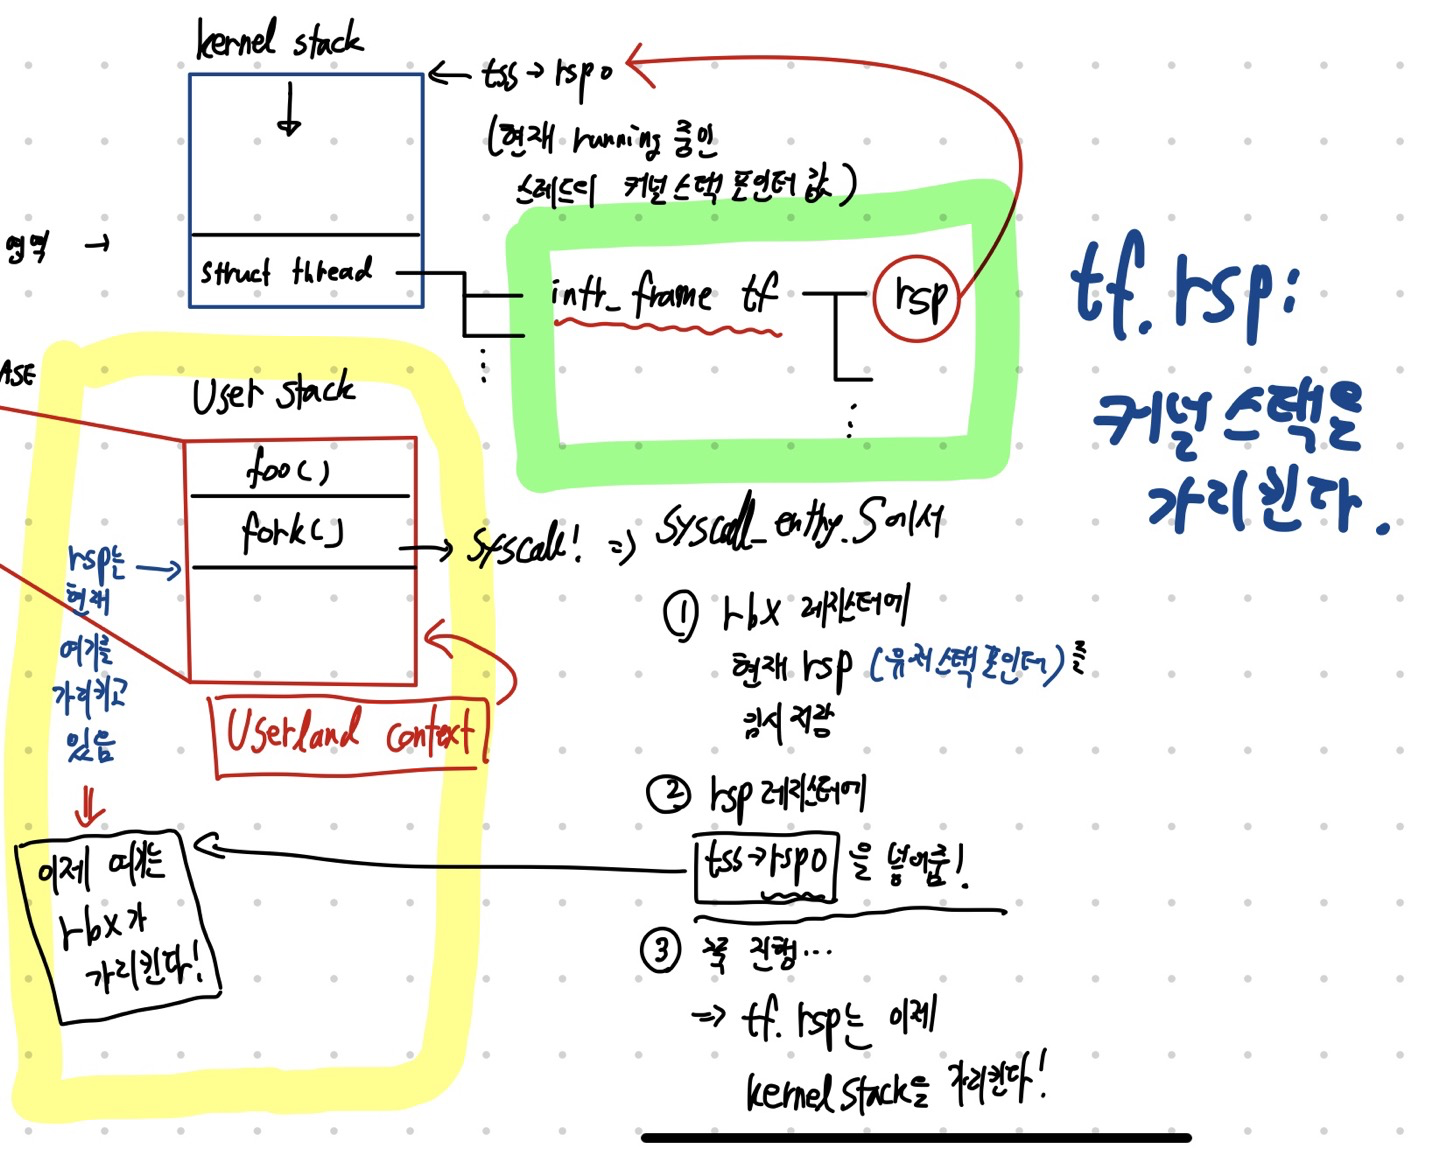 kernel stack
← tss → rsp0
(현재 running 중인
스레드의 커널 스택 포인터 값)
영역 →
struct thread
intr_frame tf
rsp
tf.rsp:
커널 스택을
가리킨다.
ASE
User stack
foo()
fork()
→ syscall! ⇒ syscall_entry.S에서
rsp는
현재
여기를
가리키고
있음
① rbx 레지스터에
현재 rsp (유저스택포인터)를
임시 저장
Userland context
② rsp 레지스터에
tss→rsp0 을 넣어줌!
이제 여기는
rbx가
가리킨다!
③ 쭉 진행...
⇒ tf.rsp는 이제
kernel stack을 가리킨다!